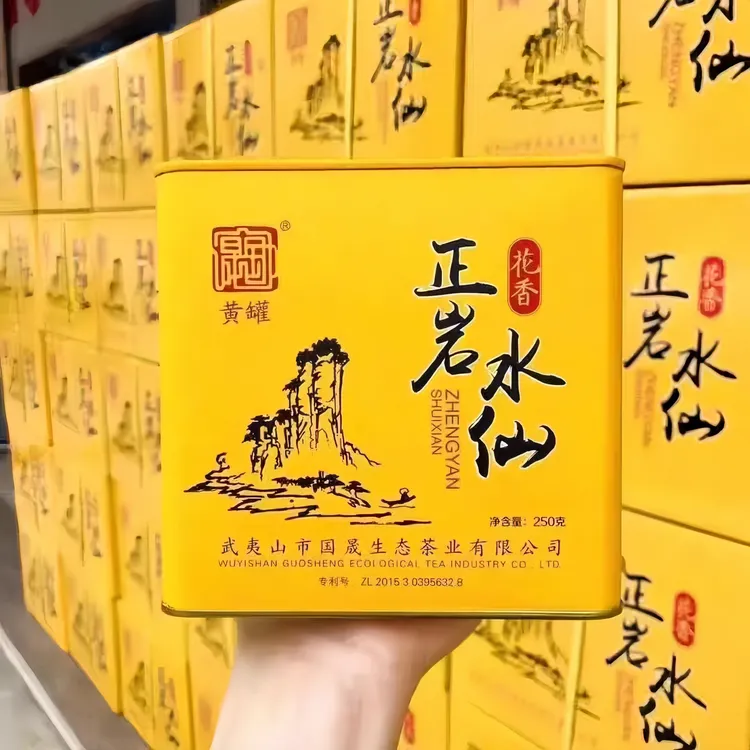 ®
黄罐
花香
正岩
水仙
ZHENGYAN
SHUIXIAN
净含量：250克
武夷山市国晟生态茶业有限公司
WUYISHAN GUOSHENG ECOLOGICAL TEA INDUSTRY CO., LTD.
专利号 ZL 2015 3 0395632.8
正岩
水仙
ZHENGYAN
水仙
ZHENGYAN
花香
正岩
水仙
花香
正岩
水仙